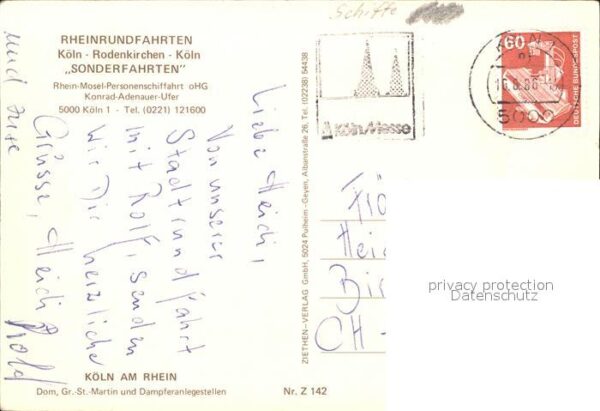 Schiffe
RHEINRUNDFAHRTEN
Köln - Rodenkirchen - Köln
„SONDERFAHRTEN"
Rhein-Mosel-Personenschiffahrt oHG
Konrad-Adenauer-Ufer
5000 Köln 1 - Tel. (0221) 121600
Liebe Heidi,
Von unserer
Stadtrundfahrt
mit Rolf, senden
wir Dir herzliche
Grüsse, Heidi
und
KÖLN AM RHEIN
Dom, Gr.-St.-Martin und Dampferanlegestellen
Nr. Z 142
ZIETHEN-VERLAG GmbH, 5024 Pulheim - Geyen, Albenstraße 26, Tel. (02238) 54438
Köln/Messe
KÖLN
5000
60
DEUTSCHE BUNDESPOST
CH -
privacy protection
Datenschutz